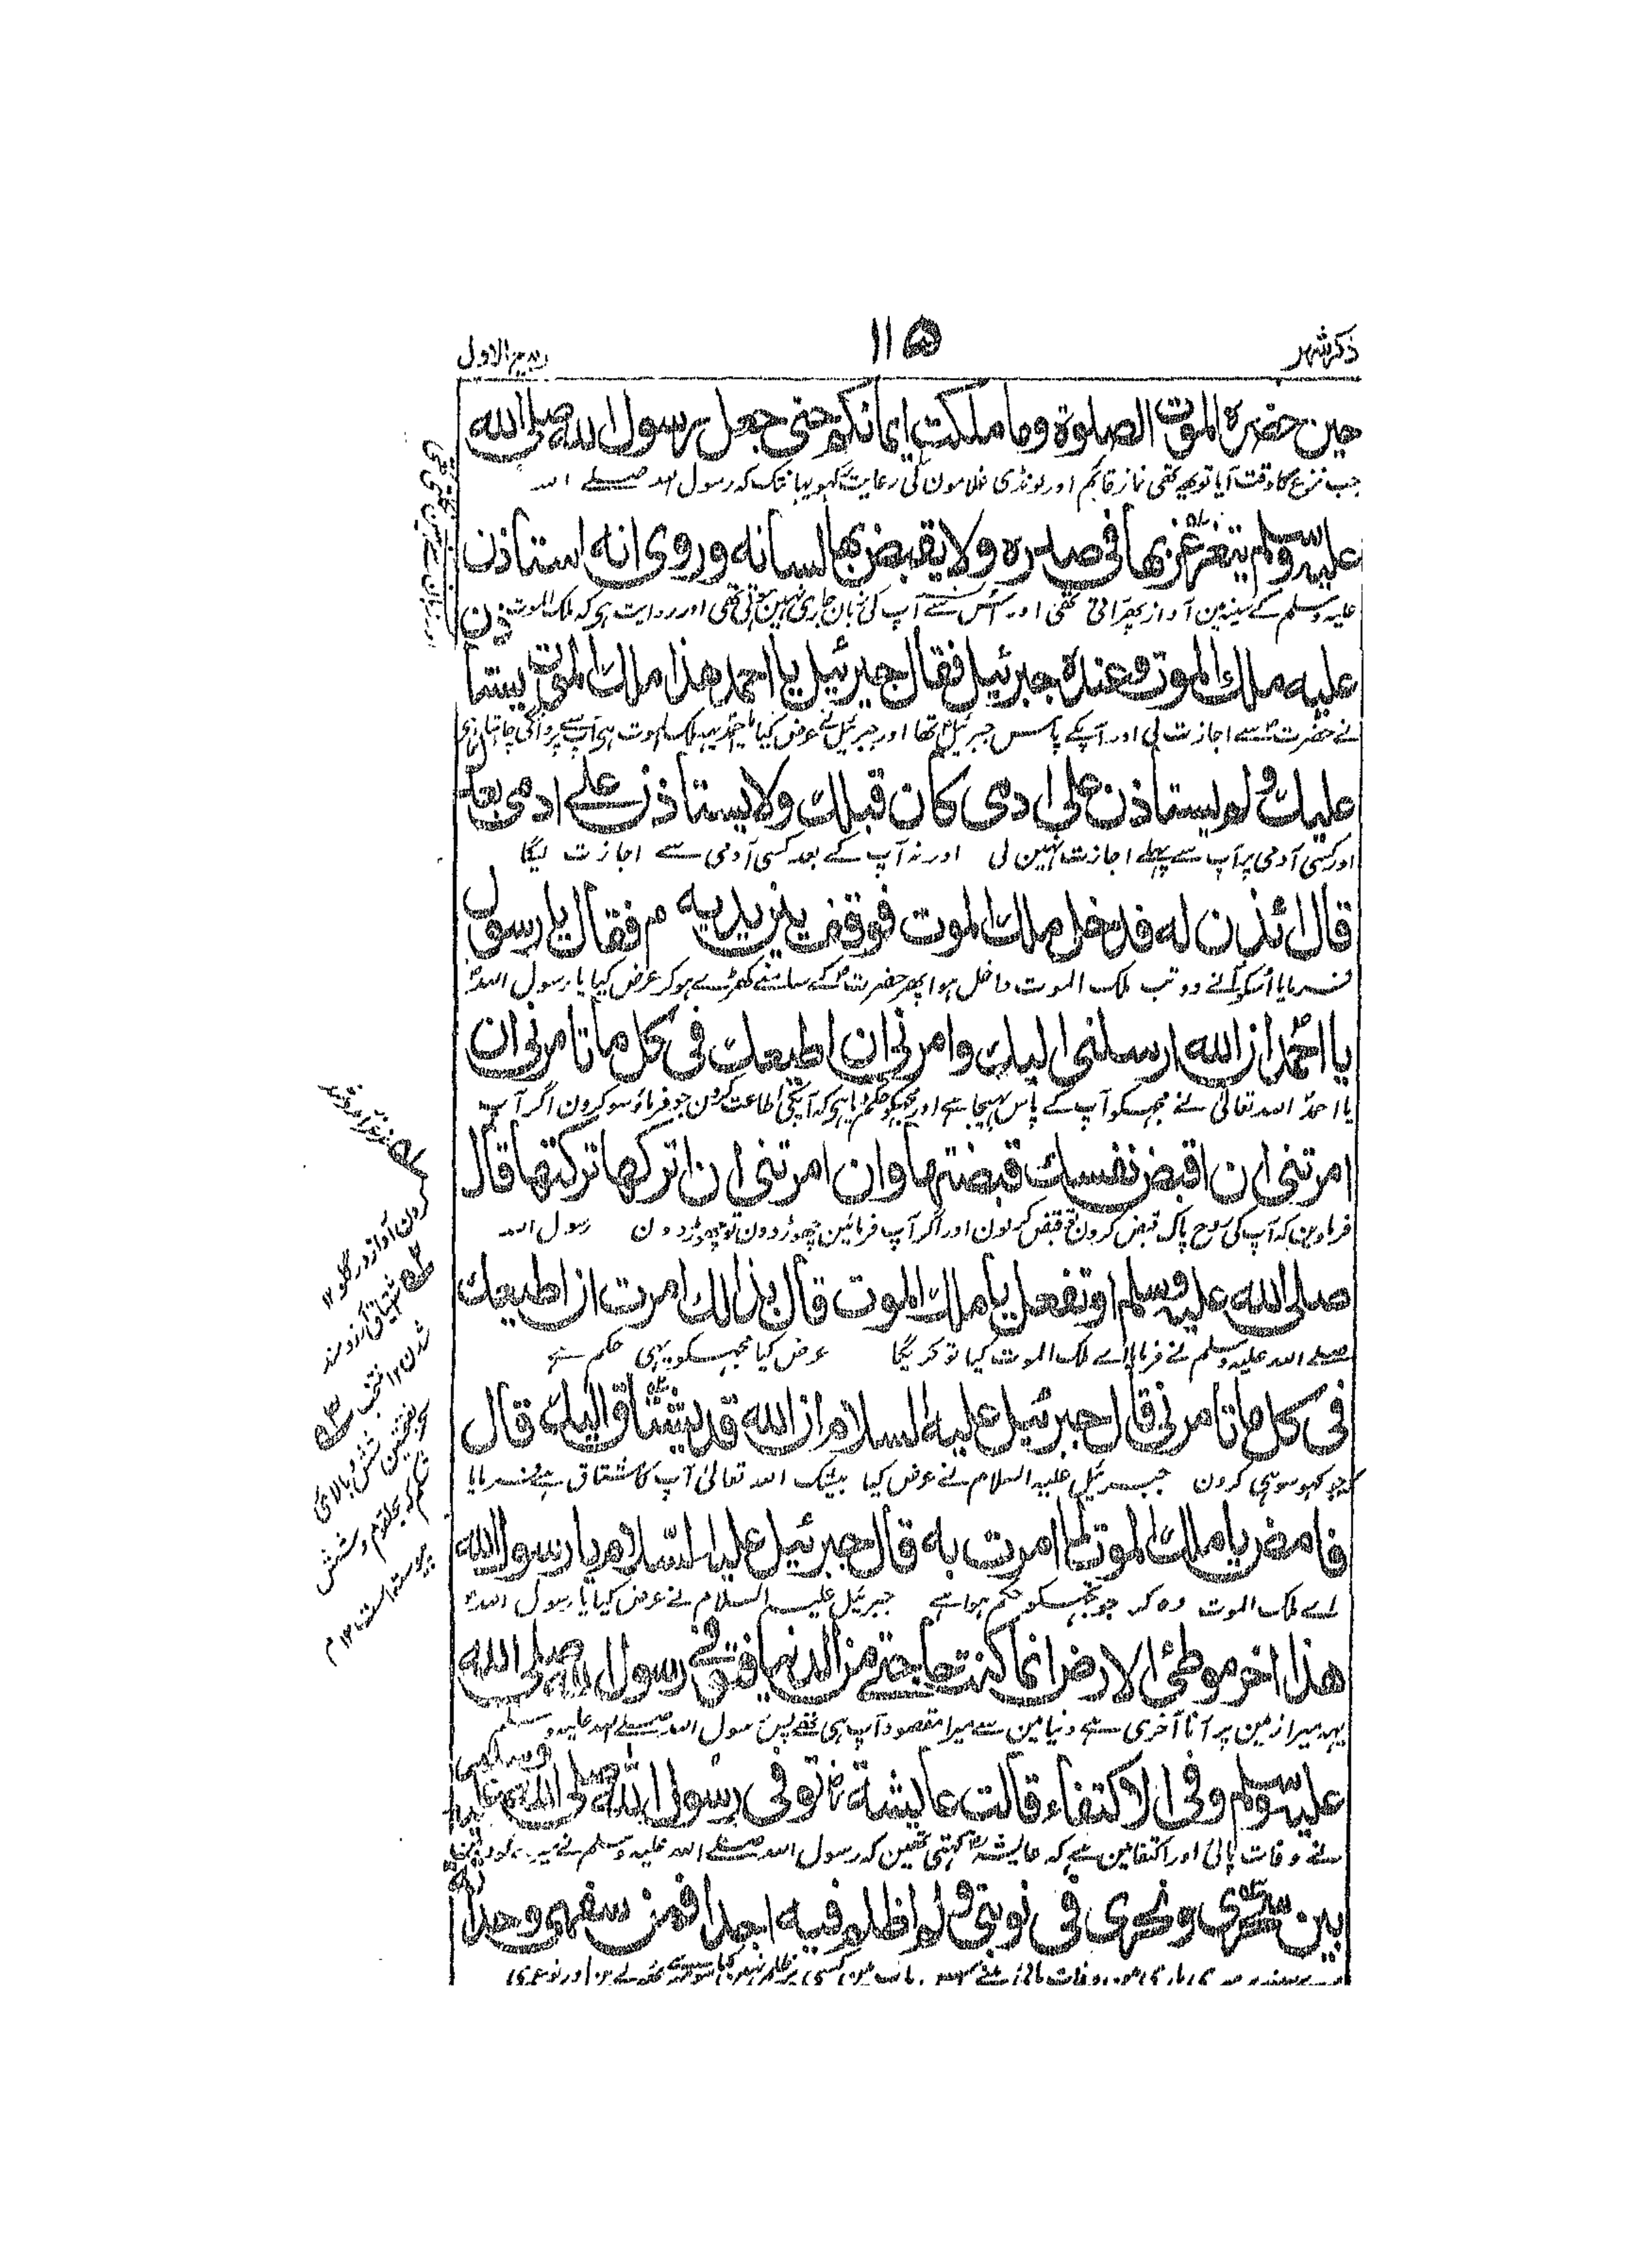 ذكر شهر
١١٥
ربيع الاول
حين حضره الموت الصلوة وما ملكت ايمانكم حتى جعل رسول الله صلى الله
جب نزع کا وقت آیا تو یہ تھی نماز قائم اور لونڈی غلامون کی رعایت رکہو یہانتک کہ رسول اللہ صلے اللہ
عليه وسلم يتغرغر بها فى صدره ولا يقبض بها لسانه وروى انه استاذن
علیہ وسلم کے سینہ مین آواز بھراتی تھی اور اُس سے آپ کی زبان جاری نہین ہوتی تھی اور روایت ہی کہ ملک الموت
عليه ملك الموت وعنده جبرئيل فقال جبرئيل يا احمد هذا ملك الموت يستاذن
نے حضرت سے اجازت لی اور آپکے پاس جبرئیل تھا اور جبرئیل نے عرض کیا یا احمد یہہ ملک الموت ہی آپ سے پروانگی چاہتا ہی
عليك ولم يستاذن على ادمى كان قبلك ولا يستاذن على ادمى بعدك
اور کسی آدمی پر آپ سے پہلے اجازت نہین لی اور نہ آپ کے بعد کسی آدمی سے اجازت لیگا
قال ائذن له فدخل ملك الموت فوقف بين يديه م فقال يا رسول
فرمایا اُسکو آنے دو تب ملک الموت داخل ہوا پھر حضرت کے سامنے کھڑے ہوکر عرض کیا یا رسول اللہ
يا احمد ان الله ارسلنى اليك وامرنى ان اطيعك فى كل ما تامرنى ان
یا احمد اللہ تعالیٰ نے مجہکو آپ کے پاس بہیجا ہے اور مجہکو حکم دیا ہی کہ آپکی اطاعت کرون جو فرماؤ سو کرون اگر آپ
امرتنى ان اقبض نفسك قبضتها وان امرتنى ان اتركها تركتها قال
فرماوین کہ آپ کی روح پاک قبض کرون تو قبض کرلون اور اگر آپ فرمائین چھوڑ دون تو چھوڑ دون رسول اللہ
صلى الله عليه وسلم اوتفعل يا ملك الموت قال بذالك امرت ان اطيعك
صلے اللہ علیہ وسلم نے فرمایا اے ملک الموت کیا تو کریگا عرض کیا مجہکو یہی حکم ہے
فى كل ما تامرنى قال جبرئيل عليه السلام ان الله قد يشتاق اليك قال
کہ جو کہو سو ہی کرون جبرئیل علیہ السلام نے عرض کیا بیشک اللہ تعالیٰ آپ کا مشتاق ہے فرمایا
فامض يا ملك الموت لما امرت به قال جبرئيل عليه السلام يا رسول الله
اے ملک الموت وہ کر جو تجہکو حکم ہوا ہے جبرئیل علیہ السلام نے عرض کیا یا رسول اللہ
هذا اخر موطئى الارض انما كنت حاجتى من الدنيا فتوفى رسول الله صلى الله
یہہ میرا زمین پر آنا آخری ہے دنیا مین سے میرا مقصود آپ ہی تھے پس رسول اللہ صلے اللہ علیہ وسلم
عليه وسلم وفى الاكتفاء قالت عايشة رض توفى رسول الله صلى الله عليه وسلم
نے وفات پائی اور اکتفا مین ہے کہ عایشہ کہتی تھین کہ رسول اللہ صلے اللہ علیہ وسلم نے
بين سحرى ونحرى فى نوبتى ولم اظلم فيه احدا فمن سفهى وحداثة
كردن آواز در گلو ۱۲
اشتیاق آرزومند
شدن ۱۲ منتخب
سحر بفتحتین شش و بالای
شکم کہ بحلقوم و شش
پیوستہ است ۱۲ م